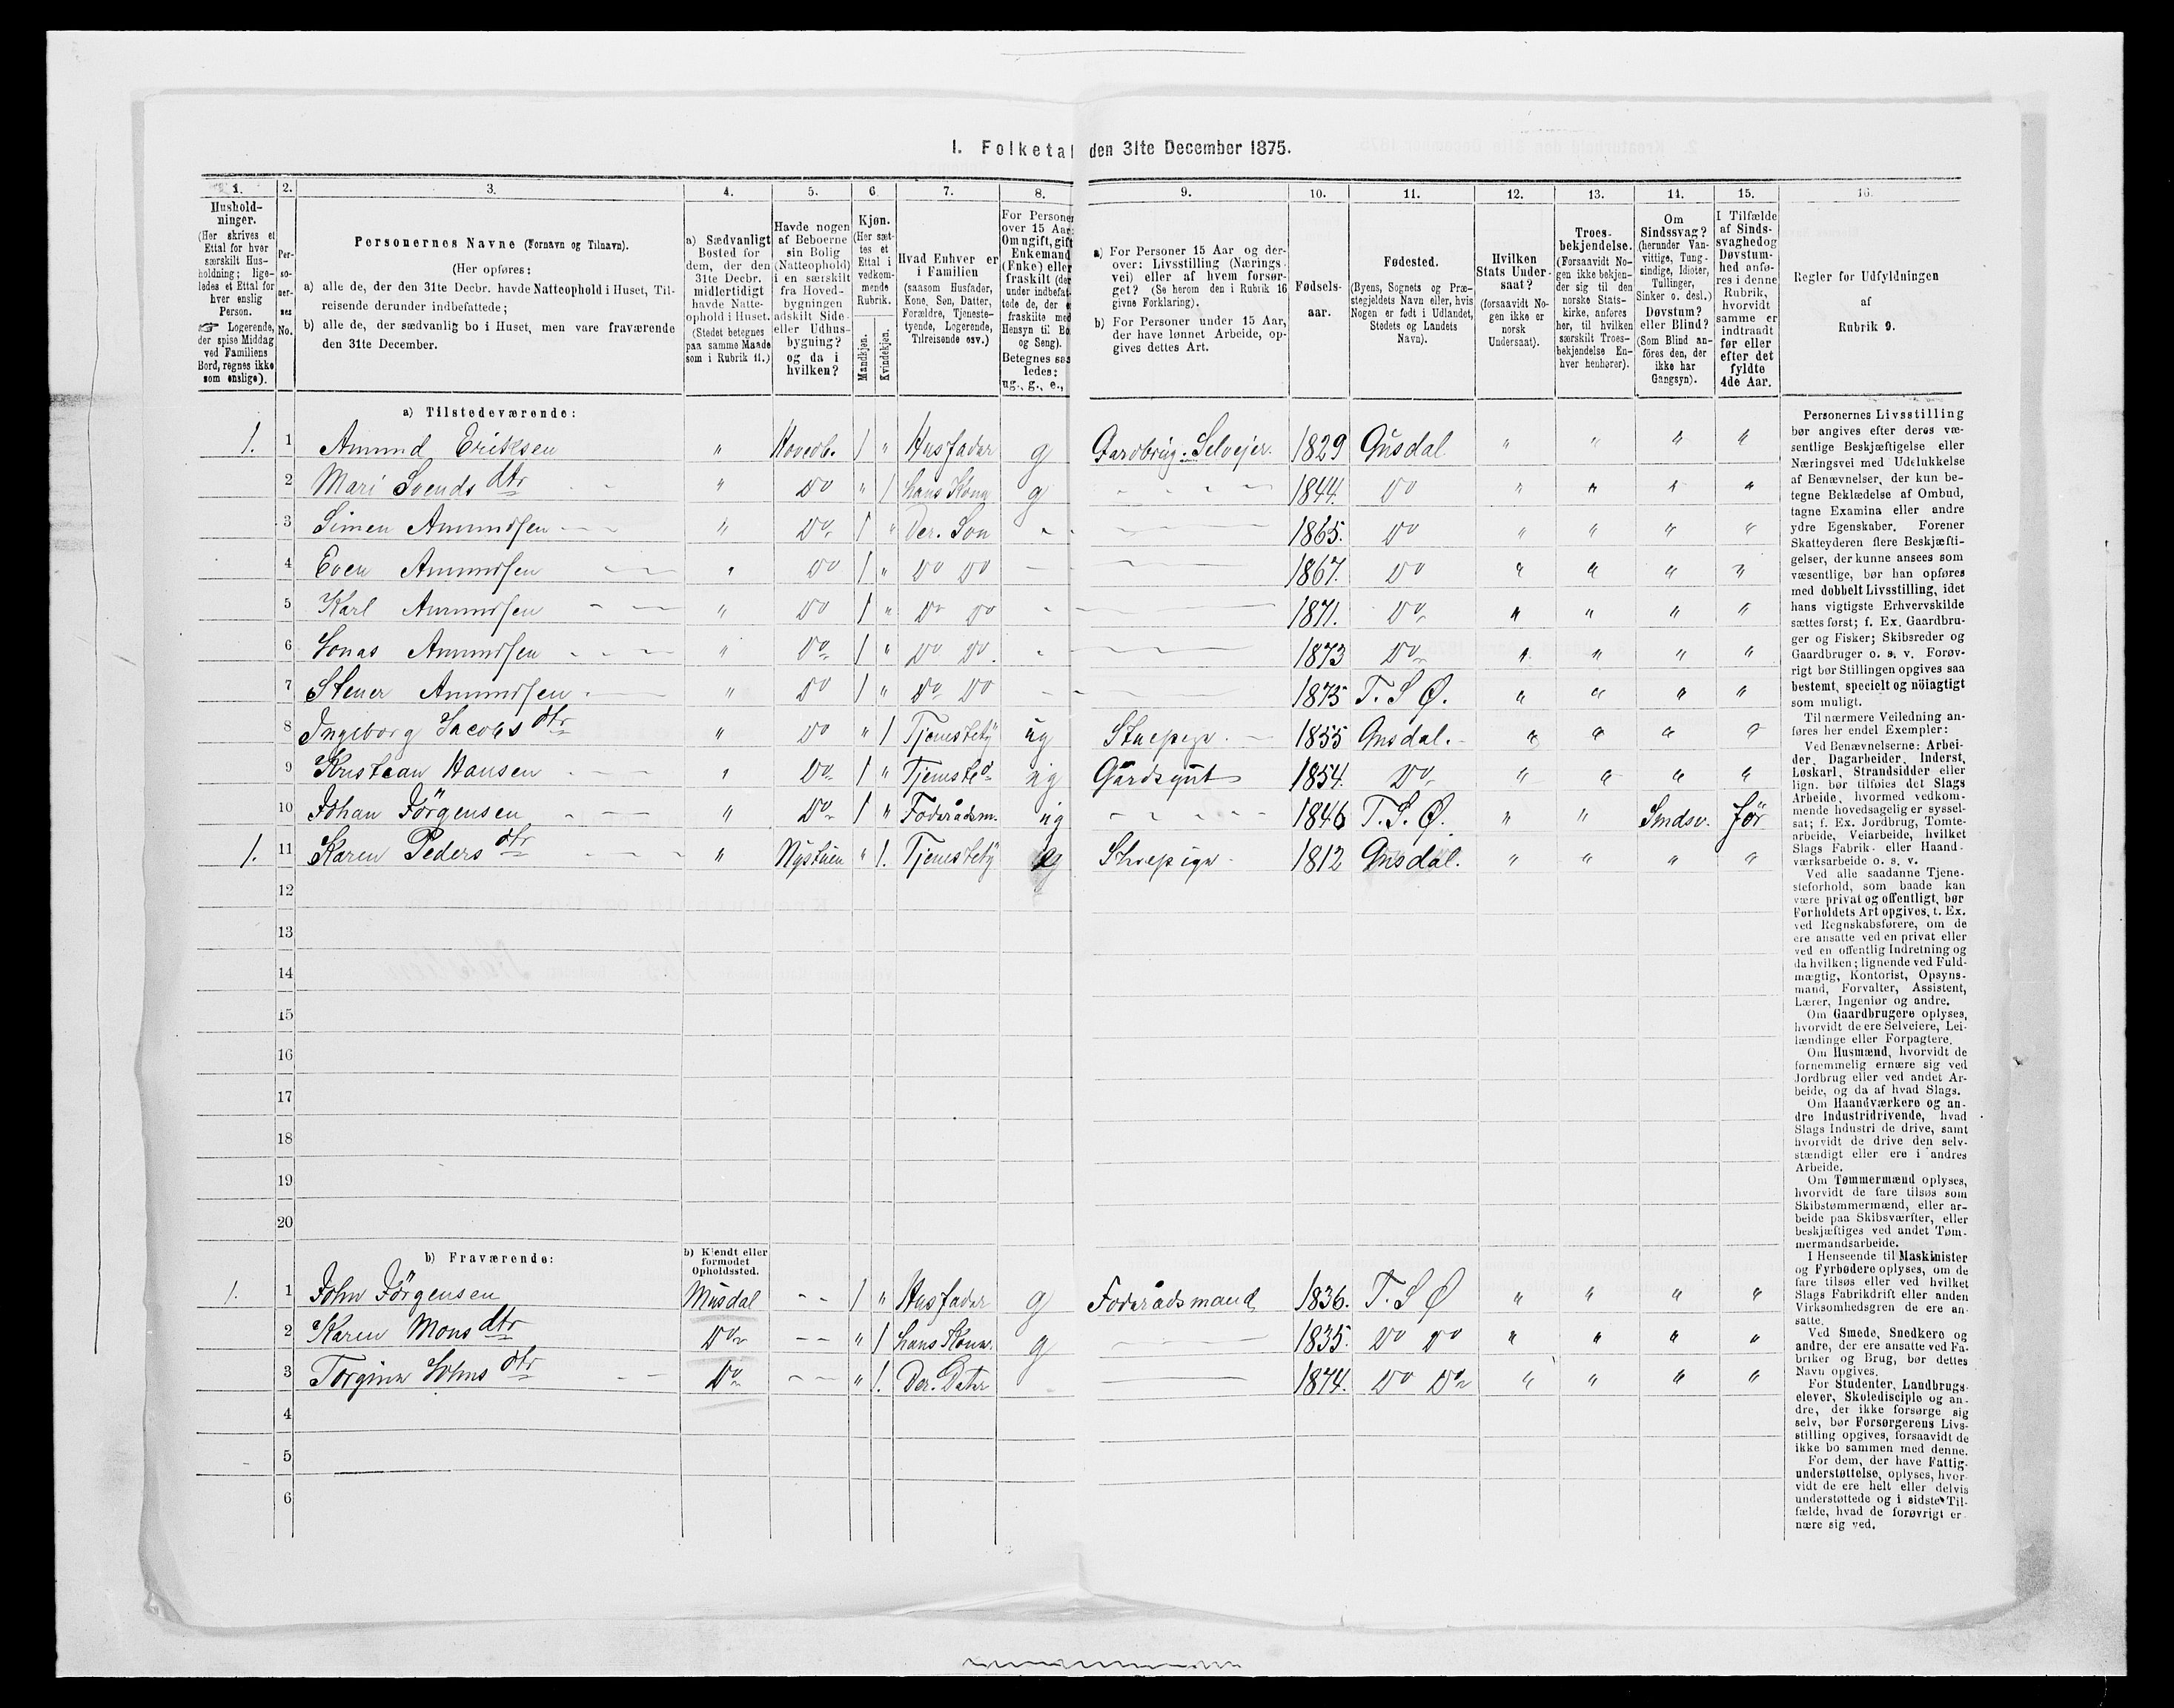 1. Folketal den 31te December 1875.
1. 2. 3. 4. 5. 6. 7. 8. 9. 10. 11. 12. 13. 14. 15. 16.
Hushold-
ninger.
(Her skrives et
Ettal for hver
særskilt Hus-
holdning; lige-
ledes et Ettal for
hver enslig
Person.
☞ Logerende,
der spise Middag
ved Familiens
Bord, regnes ikke
som enslige).
Per-
so-
ner-
nes
No.
Personernes Navne (Fornavn og Tilnavn).
(Her opføres:
a) alle de, der den 31te Decbr. havde Natteophold i Huset, Til-
reisende derunder indbefattede;
b) alle de, der sædvanlig bo i Huset, men vare fraværende
den 31te December.
a) Sædvanligt
Bosted for
dem, der den
31te Decbr.
midlertidigt
havde Natte-
ophold i Huset.
(Stedet betegnes
paa samme Maade
som i Rubrik 11.)
Havde nogen
af Beboerne
sin Bolig
(Natteophold)
i en særskilt
fra Hoved-
bygningen
adskilt Side-
eller Udhus-
bygning?
og da i
hvilken?
Kjøn.
(Her sæt-
tes et
Ettal i
vedkom-
mende
Rubrik.
Mandkjøn.
Kvindekjøn.
Hvad Enhver er
i Familien
(saasom Husfader,
Kone, Søn, Datter,
Forældre, Tjeneste-
tyende, Logerende,
Tilreisende osv.)
For Personer
over 15 Aar:
Om ugift, gift
Enkemand
(Enke) eller
fraskilt (der
under indbefat-
tede de, der e
fraskilte med
Hensyn til Bo
og Seng).
Betegnes saa
ledes:
ug., g., e.,
a) For Personer 15 Aar og der-
over: Livsstilling (Nærings-
vei) eller af hvem forsør-
get? (Se herom den i Rubrik 16
givne Forklaring).
b) For Personer under 15 Aar,
der have lønnet Arbeide, op-
gives dettes Art.
Fødsels-
aar.
Fødested.
(Byens, Sognets og Præ-
stegjeldets Navn eller, hvis
Nogen er født i Udlandet,
Stedets og Landets
Navn).
Hvilken
Stats Under-
saat?
(forsaavidt No-
gen ikke er
norsk
Undersaat).
Troes-
bekjendelse.
(Forsaavidt No-
gen ikke bekjen-
der sig til den
norske Stats-
kirke, anføres
her, til hvilken
særskilt Troes-
bekjendelse En-
hver henhører).
Om
Sindssvag?
(herunder Van-
vittige, Tung-
sindige, Idioter,
Tullinger,
Sinker o. desl.)
Døvstum?
eller Blind?
(Som Blind an-
føres den, der
ikke har
Gangsyn).
I Tilfælde
af Sinds-
svaghed og
Døvstum-
hed anfø-
res i denne
Rubrik,
hvorvidt
samme er
indtraadt
før eller
efter det
fyldte
4de Aar.
Regler for Udfyldningen
af
Rubrik 9.
a) Tilstedeværende:
1. 1 Amund Eriksen " Hovedb. 1 " Husfader g Gardbrug. Selvejer. 1829 Gusdal " " " "
2 Mari Svends dtr " Do " 1 hans Kone g 1844. Do " " " "
3 Simen Amundsen " Do 1 " Der. Søn 1865. Do " " " "
4 Even Amundsen " Do 1 " Do Do 1867. Do " " " "
5 Karl Amundsen " Do 1 " Do Do 1871. Do " " " "
6 Jonas Amundsen " Do 1 " Do Do. 1873 Do " " " "
7 Stener Amundsen " Do 1 " Do Do 1875 T. S Ø. " " " "
8 Ingeborg Jacobs dtr " Do " 1 Tjenestety ug Stuepige. 1855 Gusdal. " " " "
9 Kristean Hansen " Do 1 " Tjensted ug Gårdsgut 1854. Do " " " "
10 Johan Jörgensen " Do 1 " Foderådsm. ug 1846 T. S. Ø. " " Sindsv. för
1. 11 Karen Peders dtr " Nystuen " 1. Tjenestety Stuepige 1812 Gusdal. " " " "
12
13
14
15
16
17
18
19
20
b) Fraværende:
b) Kjendt eller
formodet
Opholdssted.
1. 1 John Jörgensen Musdal 1 " Husfader g Foderådsmand 1836. T. S Ø " " " "
2 Karen Mons dtr Do " 1 hans Kone. g 1835. Do Do " " " "
3 Torgine Johns dtr Do " 1. Der. Datter 1874. Do Do " " " "
4
5
6
Personernes Livsstilling
bør angives efter deres væ-
sentlige Beskjæftigelse eller
Næringsvei med Udelukkelse
af Benævnelser, der kun be-
tegne Beklædelse af Ombud,
tagne Examina eller andre
ydre Egenskaber. Forener
Skatteyderen flere Beskjæfti-
gelser, der kunne ansees som
væsentlige, bør han opføres
med dobbelt Livsstilling, idet
hans vigtigste Erhvervskilde
sættes først; f. Ex. Gaardbru-
ger og Fisker; Skibsreder og
Gaardbruger o. s. v. Forøv-
rigt bør Stillingen opgives saa
bestemt, specielt og nöiagtigt
som muligt.
Til nærmere Veiledning an-
føres her endel Exempler:
Ved Benævnelserne: Arbei-
der, Dagarbeider, Inderst,
Løskarl, Strandsidder eller
lign. bør tilføies det Slags
Arbeide, hvormed vedkom-
mende hovedsagelig er syssel-
sat; f. Ex. Jordbrug, Tomte-
arbeide, Veiarbeide, hvilket
Slags Fabrik- eller Haand-
værksarbeide o. s. v.
Ved alle saadanne Tjene-
steforhold, som baade kan
være privat og offentligt, bør
Forholdets Art opgives, t. Ex.
ved Regnskabsførere, om de
ere ansatte ved en privat eller
ved en offentlig Indretning og
da hvilken; lignende ved Fuld-
mægtig, Kontorist, Opsyns-
mand, Forvalter, Assistent,
Lærer, Ingeniør og andre.
Om Gaardbrugere oplyses,
hvorvidt de ere Selveiere, Lei-
lændinge eller Forpagtere.
Om Husmænd, hvorvidt de
fornemmelig ernære sig ved
Jordbrug eller ved andet Ar-
beide, og da af hvad Slags.
Om Haandværkere og an-
dre Industridrivende, hvad
Slags Industri de drive, samt
hvorvidt de drive den selv-
stændigt eller ere i andres
Arbeide.
Om Tømmermænd oplyses,
hvorvidt de fare tilsøs som
Skibstømmermænd, eller ar-
beide paa Skibsværfter, eller
beskjæftiges ved andet Tøm-
mermandsarbeide.
I Henseende til Maskinister
og Fyrbødere oplyses, om de
fare tilsøs eller ved hvilket
Slags Fabrikdrift eller anden
Virksomhedsgren de ere an-
satte.
Ved Smede, Snedkere og
andre, der ere ansatte ved Fa-
briker og Brug, bør dettes
Navn opgives.
For Studenter, Landbrugs-
elever, Skoledisciple og an-
dre, der ikke forsørge sig
selv, bør Forsørgerens Livs-
stilling opgives, forsaavidt de
ikke bo sammen med denne.
For dem, der have Fattig-
understøttelse, oplyses, hvor-
vidt de ere helt eller delvis
understøttede og i sidste Til-
fælde, hvad de forøvrigt er-
nære sig ved.